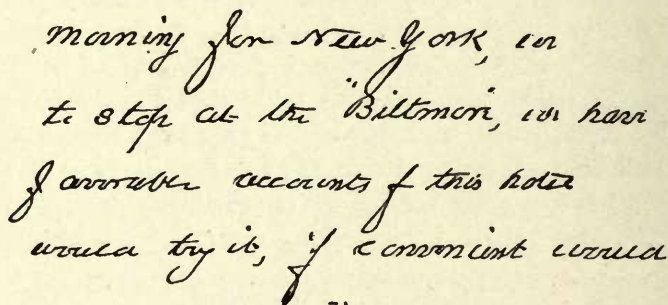 morning for New York, we
to stop at the "Biltmore", we have
favorable accounts of this hotel
would try it, if convenient would